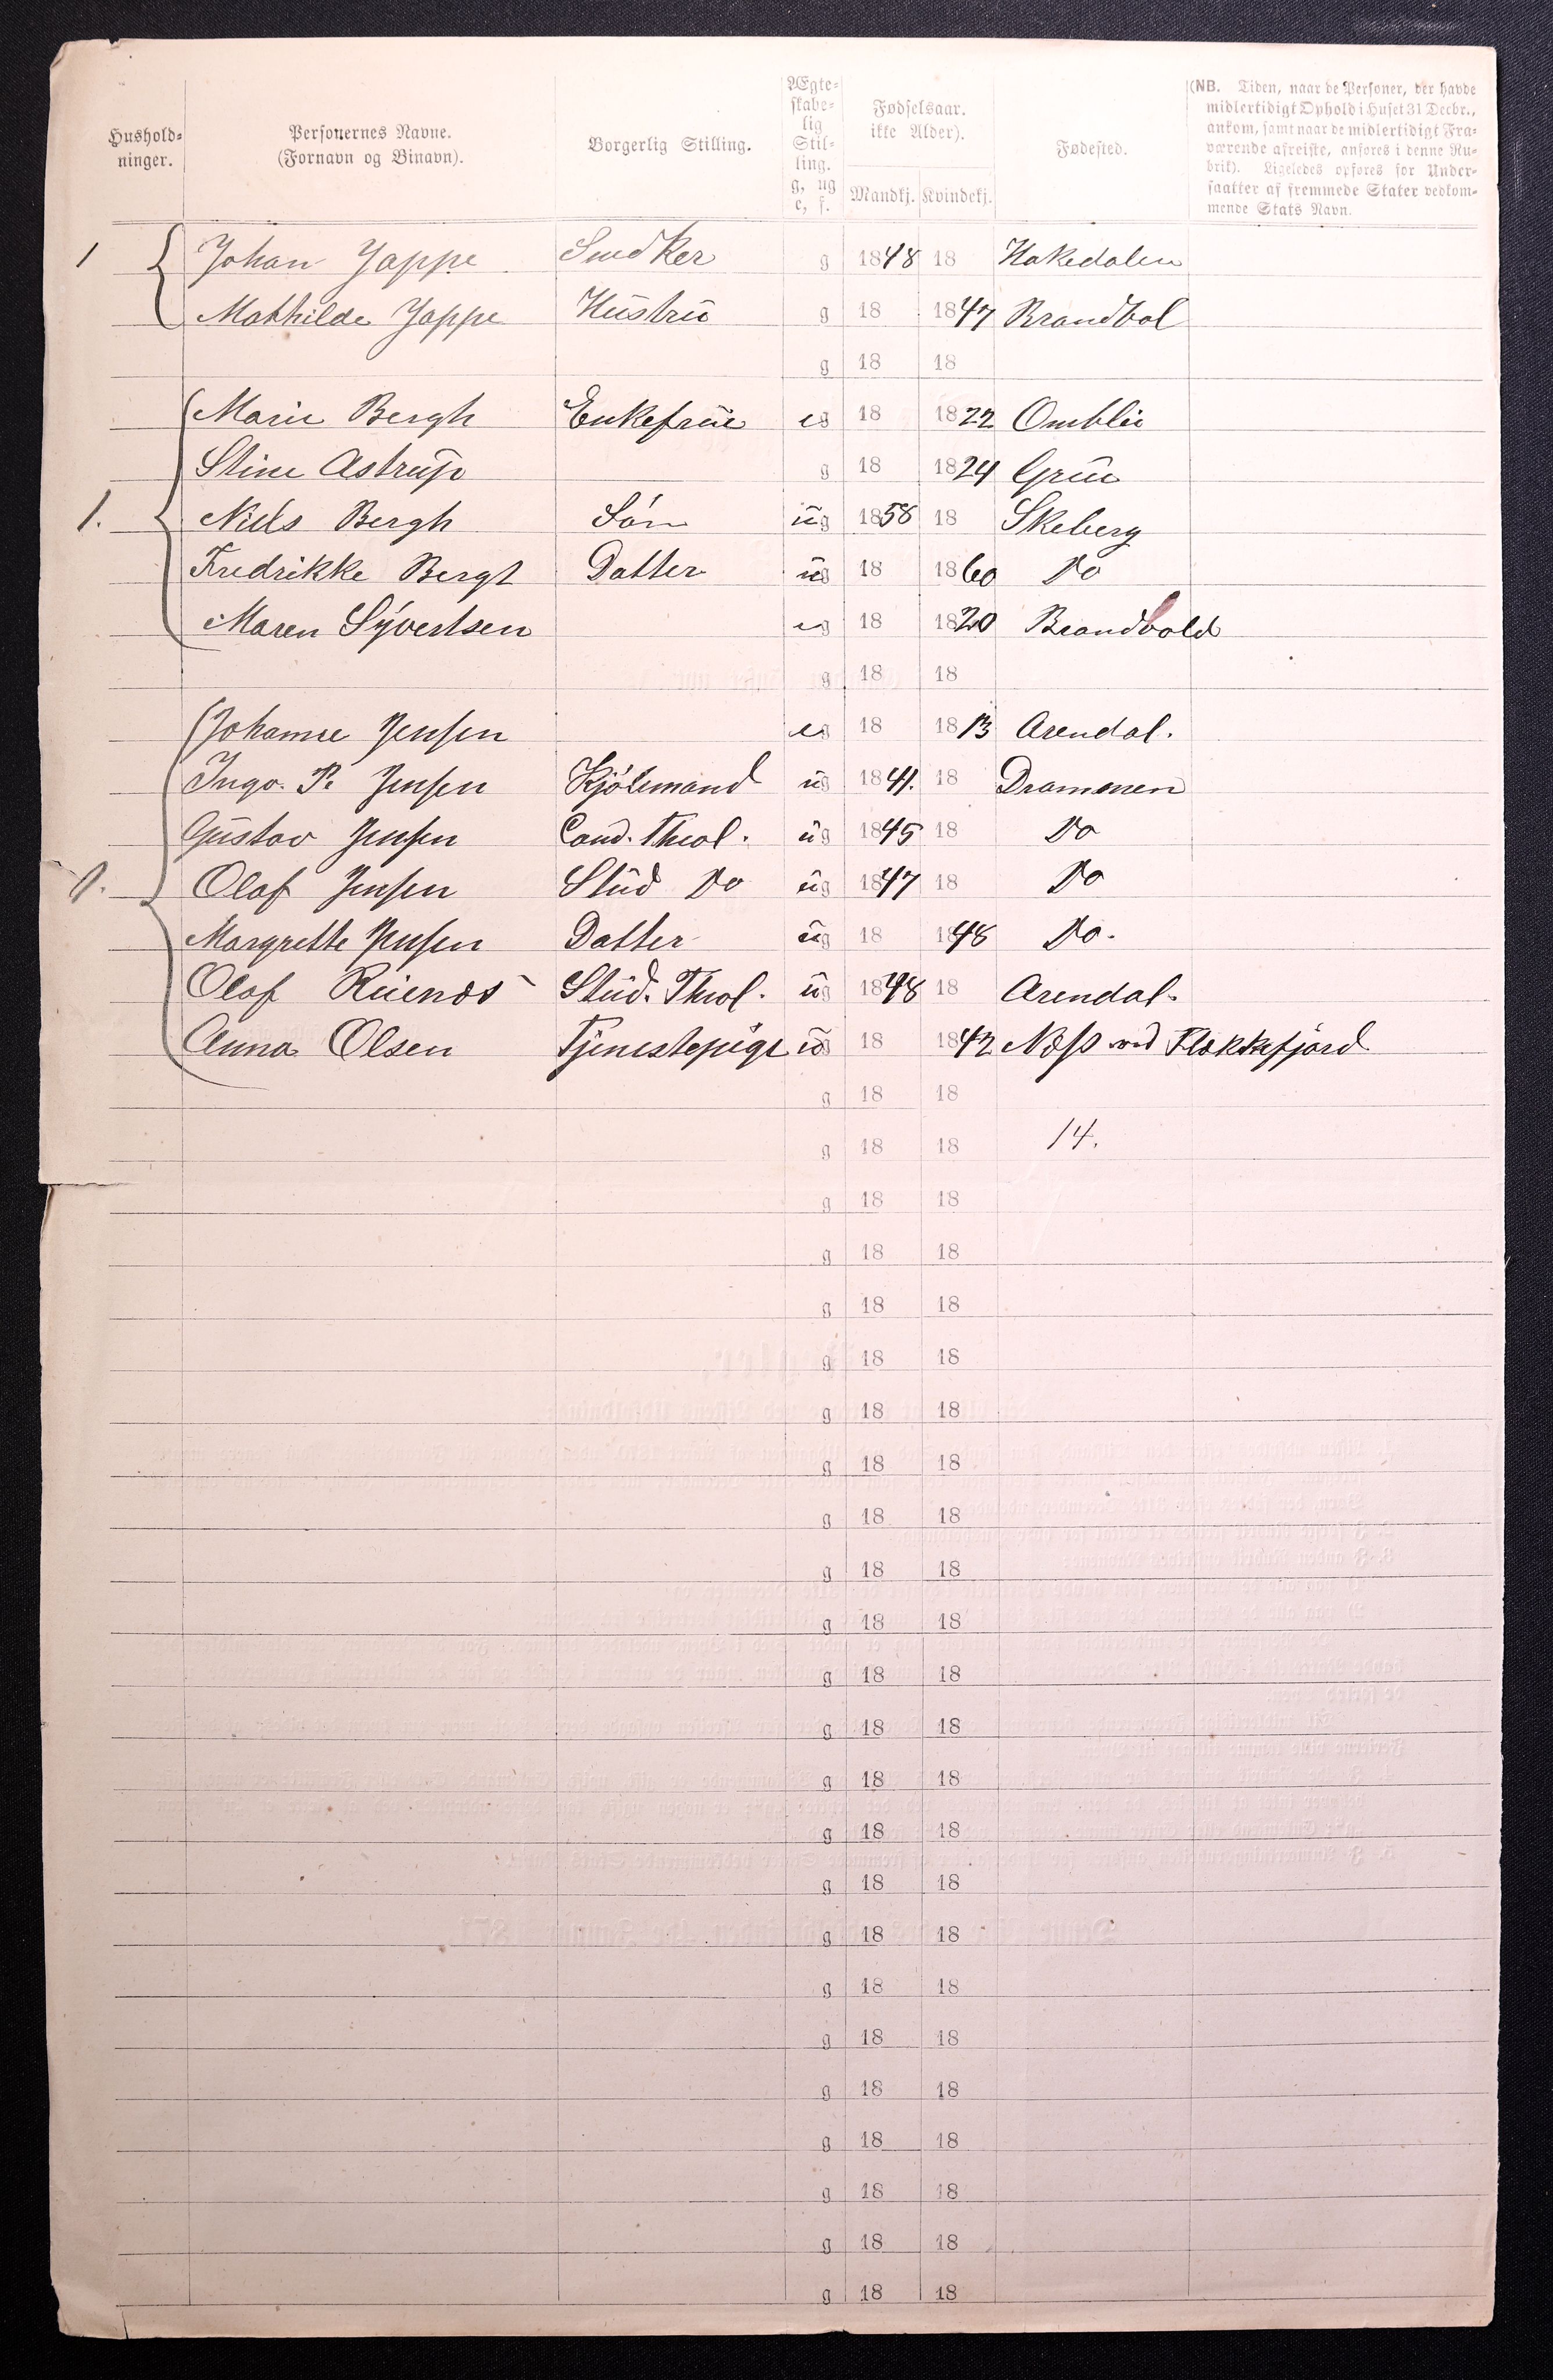 Hushold-
ninger.
Personernes Navne.
(Fornavn og Binavn).
Borgerlig Stilling.
Ægte-
skabe-
lig
Stil-
ling.
g, ug
e, f.
Fødselsaar.
ikke Alder).
Mandkj. Kvindekj.
Fødested.
(NB. Tiden, naar de Personer, der havde
midlertidigt Ophold i Huset 31 Decbr.,
ankom, samt naar de midlertidigt Fra-
værende afreiste, anføres i denne Ru-
brik). Ligeledes opføres for Under-
saatter af fremmede Stater vedkom-
mende Stats Navn.
1 Johan Jappe Snedker g 1848 18 Hakedalen
Mathilde Jappe Hustru g 18 1847 Brandbol
g 18 18
Marie Bergh Enkefrue eg 18 1822 Omblie
Stine Astrup g 18 1824 Grue
1. Niels Bergh Søn ug 1858 18 Skeberg
Fredrikke Bergh Datter ug 18 1860 Do
Maren Syvertsen eg 18 1820 Brandbold
g 18 18
Johanne Jensen eg 18 1813 Arendal.
Ingv. P. Jensen Kjøbmand ug 1841. 18 Drammen
Gustav Jensen Cand. Theol. ug 1845 18 Do
1. Olaf Jensen Stud Do ug 1847 18 Do
Margrethe Jensen Datter ug 18 1848 Do.
Olaf Stud. Theol. ug 1848 18 Arendal.
Anna Olsen Tjenestepige ug 18 1842 Næss ved Flekkefjord
g 18 18
g 18 18 14.
g 18 18
g 18 18
g 18 18
g 18 18
g 18 18
g 18 18
g 18 18
g 18 18
g 18 18
g 18 18
g 18 18
g 18 18
g 18 18
g 18 18
g 18 18
g 18 18
g 18 18
g 18 18
g 18 18
g 18 18
g 18 18
g 18 18